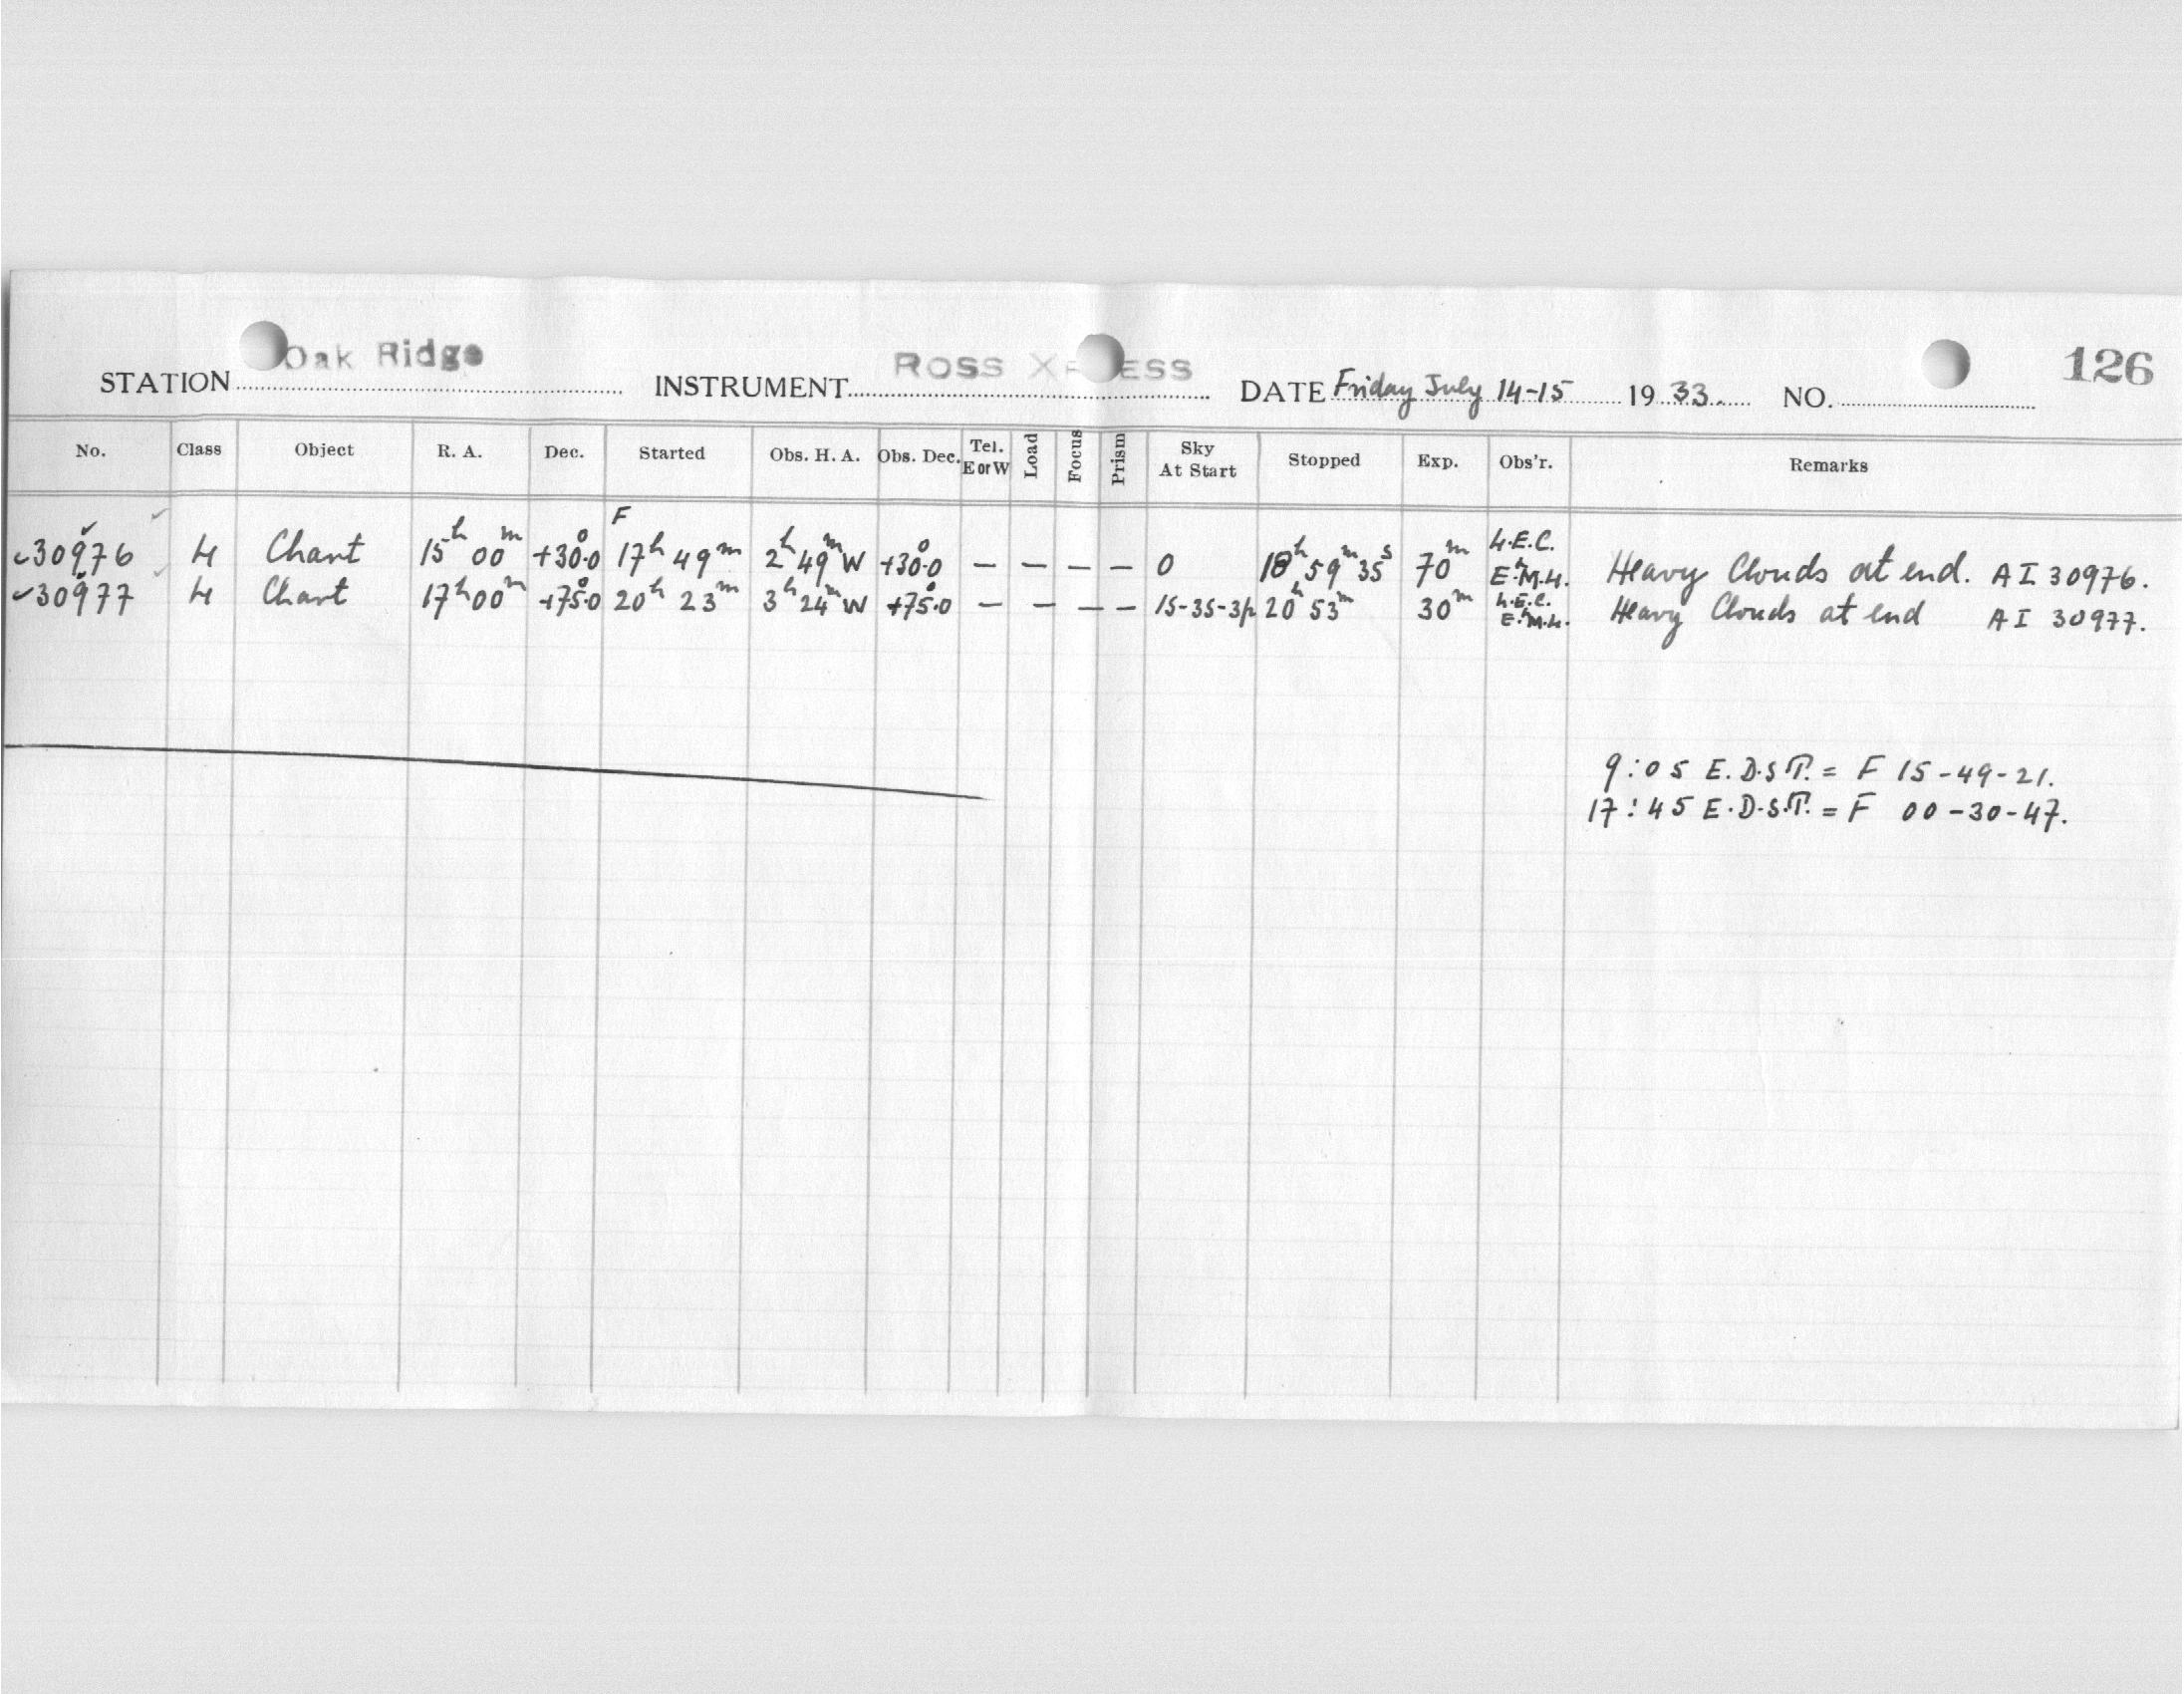 Oak Ridge ROSS X ESS 126
STATION INSTRUMENT DATE Friday July 14-15 1933. NO.
No. Class Object R. A. Dec. Started Obs. H. A. Obs. Dec. Tel. E or W Load Focus Prism Sky At Start Stopped Exp. Obs'r. Remarks
F
30976 4 Chart 15h 00m +30°.0 17h 49m 2h 49m W +30°.0 — — — — 0 18h 59m 35s 70m L.E.C. E.M.H. Heavy Clouds at end. AI 30976.
30977 4 Chart 17h 00m +75°.0 20h 23m 3h 24m W +75°.0 — — — — 15-35-3p 20h 53m 30m L.E.C. E.M.H. Heavy Clouds at end AI 30977.
9:05 E.D.S.T. = F 15-49-21.
17:45 E.D.S.T. = F 00-30-47.